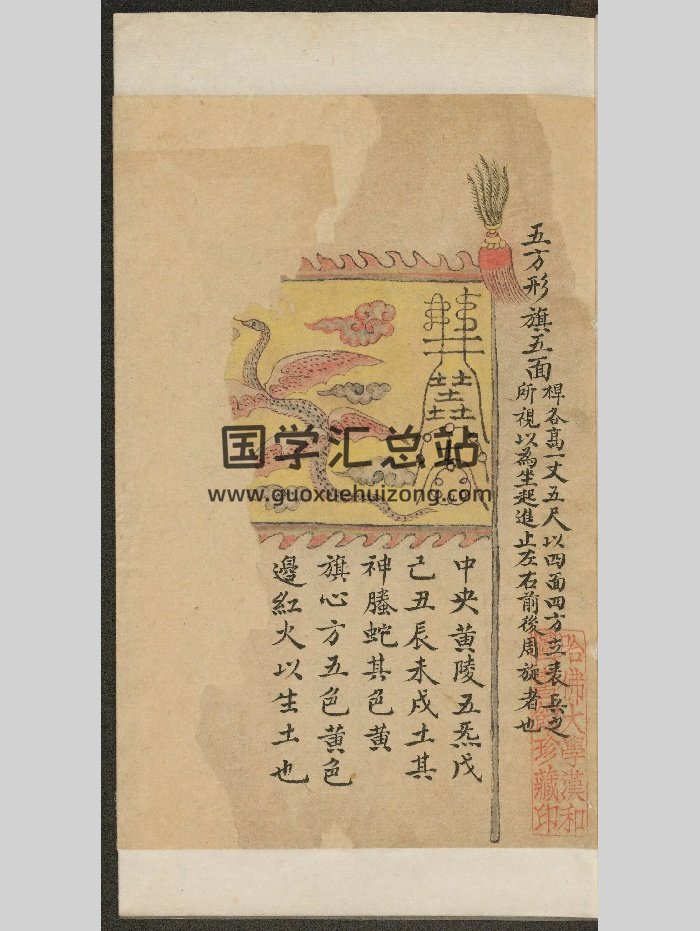 五方形旗五面
桿各高一丈五尺以四面四方立表兵之
所視以為坐起進止左右前後周旋者也
中央黄陵五炁戊
己丑辰未戌土其
神螣蛇其色黄
旗心方五色黄色
邊紅火以生土也
土土
土土
土土
国学汇总站
www.guoxuehuizong.com
哈佛大學漢和
圖書館珍藏印